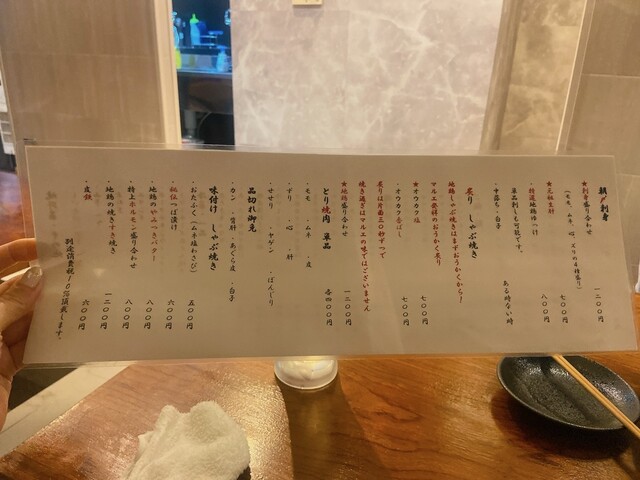 朝〆刺身
★刺身盛り合わせ 一二〇〇円
(モモ、ムネ、心、ズリの4種盛り)
★元祖生肝 七〇〇円
★特選地鶏ユッケ 八〇〇円
単品刺しも可能です。
・すき身・白子 ある時ない時
炙り しゃぶ焼き
地鶏しゃぶ焼きはまずおうかくから!
マルエ発祥のおうかく炙り
★オウカク塩 七〇〇円
・オウカク香ばし 七〇〇円
炙りは片面三〇秒ずつで
焼き過ぎはマルエの味ではございません
★地鶏盛り合わせ 一二〇〇円
とり焼肉 単品 各四〇〇円
・モモ ・ムネ ・皮
・ずり ・心 ・肝
・せせり ・ヤゲン ・ぼんじり
品切れ御免
・カン ・背肝 ・あぐら皮 ・白子
味付け しゃぶ焼き
・おたふく(ムネ塩わさび) 五〇〇円
・秘伝つぼ漬け 六〇〇円
・地鶏のやみつきバター 八〇〇円
・特上ホルモン盛り合わせ 一二〇〇円
・地鶏の焼きすき焼き 一二〇〇円
・皮鉄 六〇〇円
別途消費税10%頂戴します。